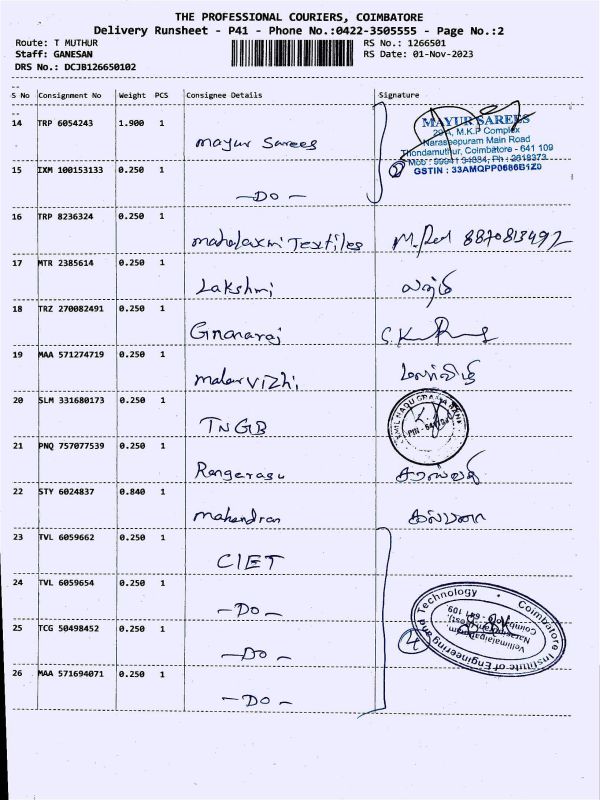 THE PROFESSIONAL COURIERS, COIMBATORE
Delivery Runsheet - P41 - Phone No.:0422-3505555 - Page No.:2
Route: T MUTHUR RS No.: 1266501
Staff: GANESAN RS Date: 01-Nov-2023
DRS No.: DCJB126650102
S No Consignment No Weight PCS Consignee Details Signature
14 TRP 6054243 1.900 1
Mayur Sarees
MAYUR SAREES
29A, M.K.P Complex
Naraseepuram Main Road
Thondamuthur, Coimbatore - 641 109
Mob : 99941 34034, Ph : 2618373
GSTIN : 33AMQPP0686B1Z0
15 IXM 100153133 0.250 1
- DO -
2
16 TRP 8236324 0.250 1
Mahalaxmi Textiles 8870813492
17 MTR 2385614 0.250 1
Lakshmi
18 TRZ 270082491 0.250 1
Gnanaraj
19 MAA 571274719 0.250 1
malarvizhi
20 SLM 331680173 0.250 1
TNGB
TAMIL NADU GRAMA BANK
21 PNQ 757077539 0.250 1
Rangarasu
22 STY 6024837 0.840 1
Mahendran
23 TVL 6059662 0.250 1
CIET
24 TVL 6059654 0.250 1
- DO -
Coimbatore Institute of Engineering and Technology
Vellimalaipatinam
Narasipuram (Post),
Coimbatore - 641 109
4
25 TCG 50498452 0.250 1
- DO -
26 MAA 571694071 0.250 1
- DO -